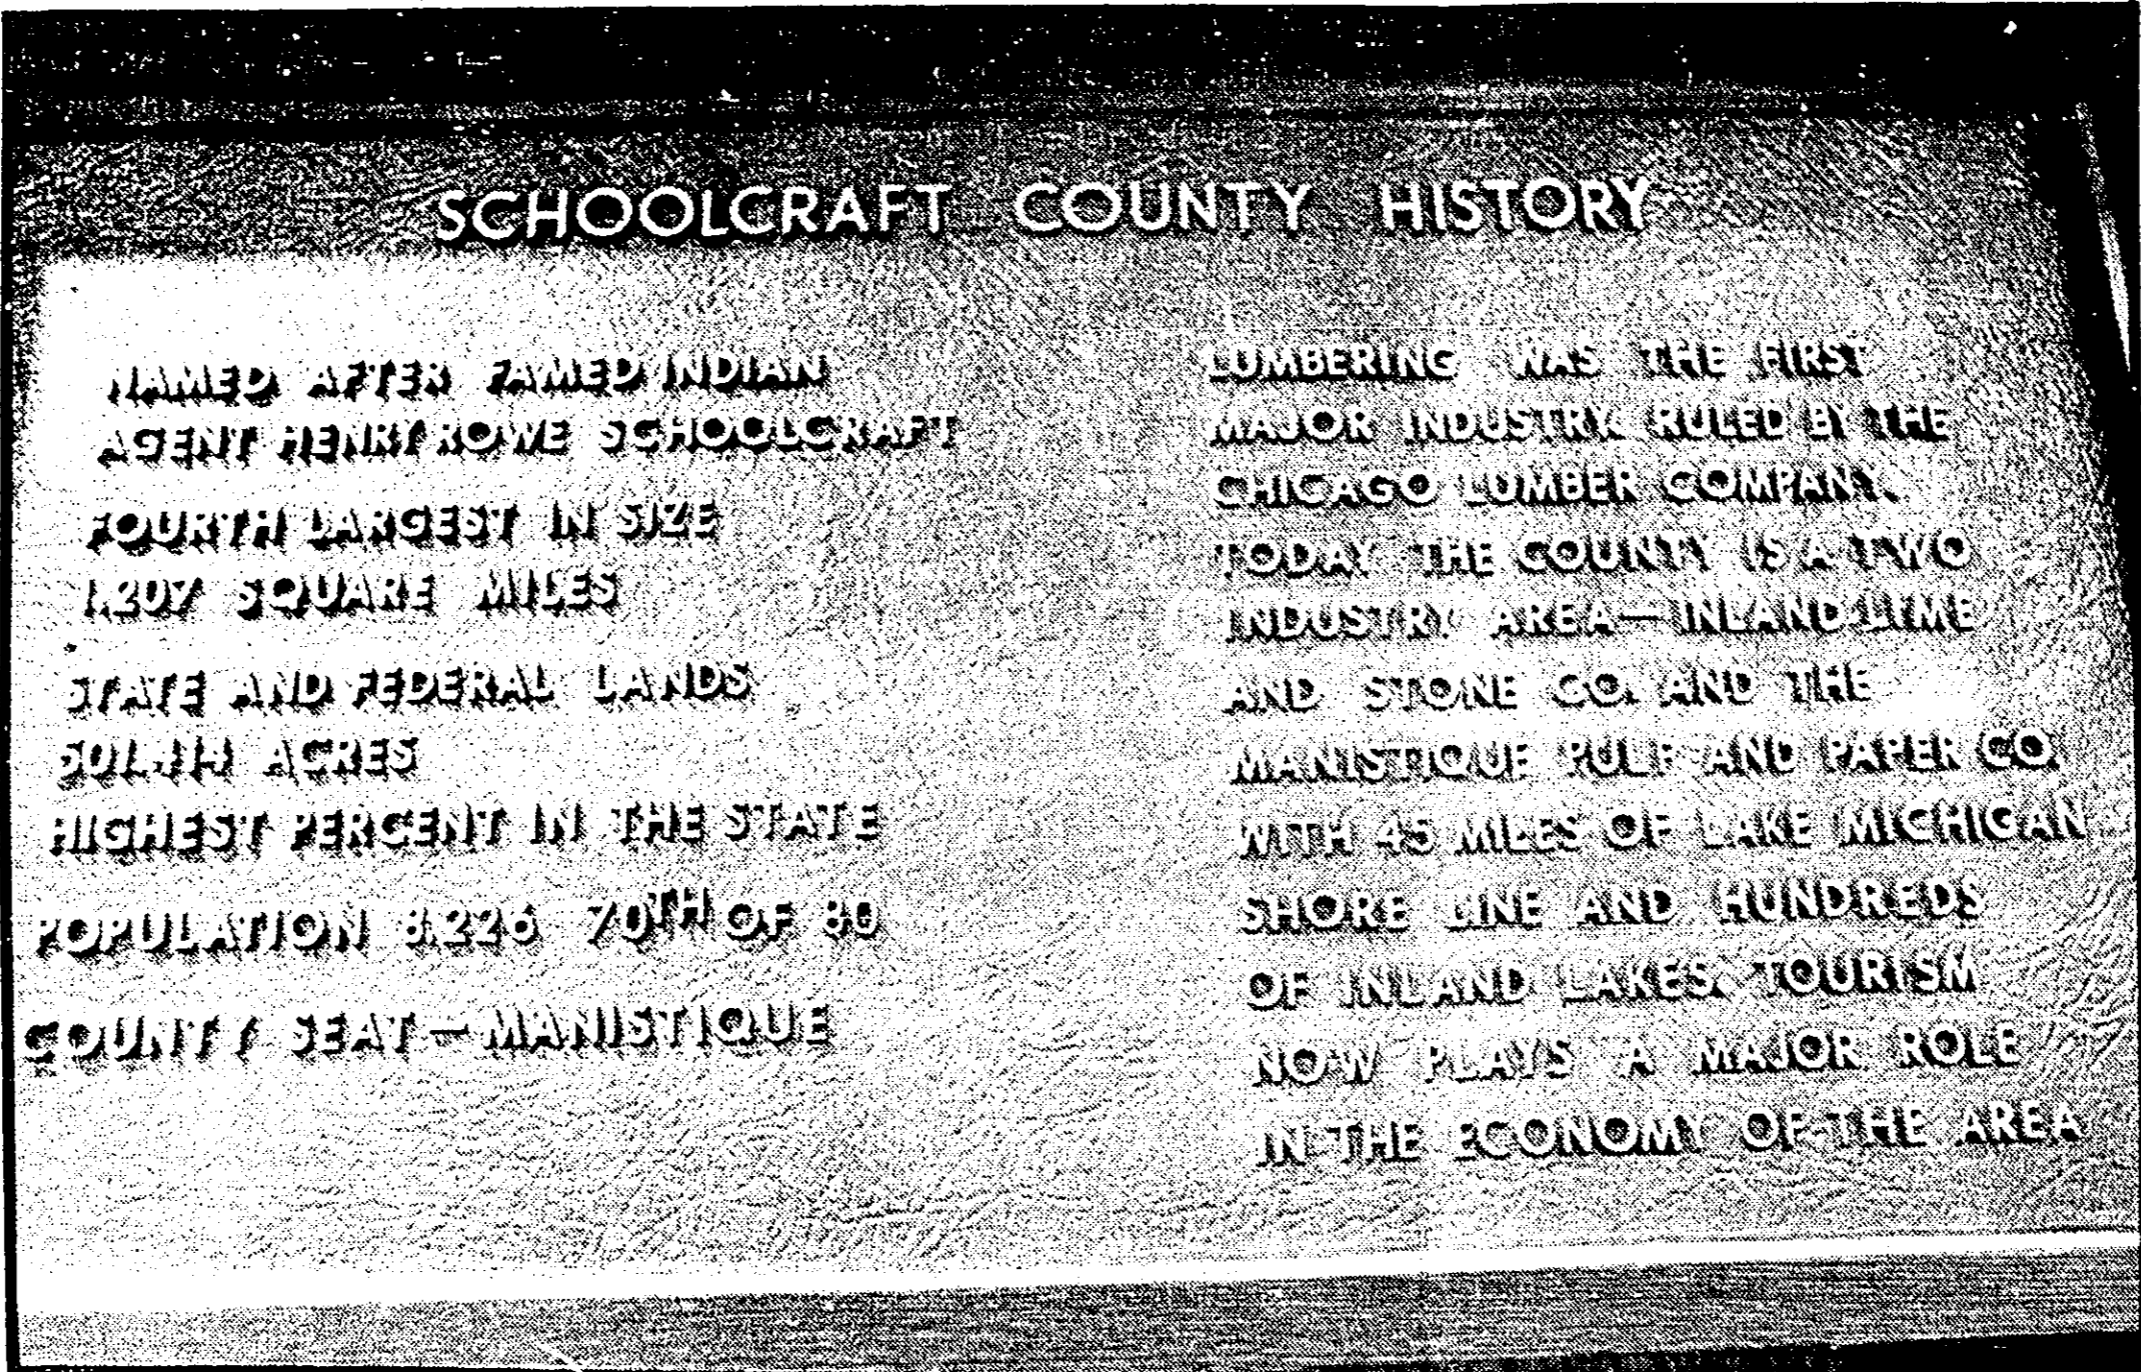 SCHOOLCRAFT COUNTY HISTORY
NAMED AFTER FAMED INDIAN
AGENT HENRY ROWE SCHOOLCRAFT
FOURTH LARGEST IN SIZE
1,207 SQUARE MILES
STATE AND FEDERAL LANDS
501,414 ACRES
HIGHEST PERCENT IN THE STATE
POPULATION 8,226 70TH OF 80
COUNTY SEAT — MANISTIQUE
LUMBERING WAS THE FIRST
MAJOR INDUSTRY. RULED BY THE
CHICAGO LUMBER COMPANY.
TODAY THE COUNTY IS A TWO
INDUSTRY AREA — INLAND LIME
AND STONE CO. AND THE
MANISTIQUE PULP AND PAPER CO.
WITH 45 MILES OF LAKE MICHIGAN
SHORE LINE AND HUNDREDS
OF INLAND LAKES. TOURISM
NOW PLAYS A MAJOR ROLE
IN THE ECONOMY OF THE AREA